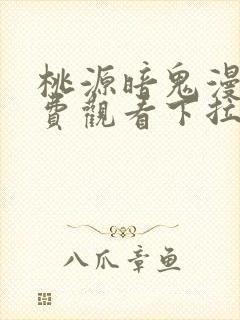 桃源暗鬼漫
費觀看下拉
八爪章鱼